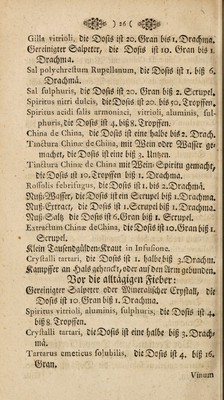 ) 26 (
Gilla vitrioli, die Dosis ist 20. Gran bis 1. Drachma.
Gereinigter Salpeter, die Dosis ist 10. Gran bis 1.
Drachma.
Sal polychrestum Rupellanum, die Dosis ist 1. biß 6.
Drachmâ.
Sal sulphuris, die Dosis ist 20. Gran biß 2. Scrupel.
Spiritus nitri dulcis, die Dosis ist 20. bis 50. Tropffen.
Spiritus acidi salis armoniaci, vitrioli, aluminis, sul-
phuris, die Dosis ist 4. biß 8. Tropffen.
China de China, die Dosis ist eine halbe biß 2. Drach.
Tinctura Chinæ de China, mit Wein oder Wasser ge-
machet, die Dosis ist eine biß 2. Untzen.
Tinctura Chinæ de China mit Wein-Spiritu gemacht,
die Dosis ist 10. Tropffen biß 1. Drachma.
Rossolis febrifugus, die Dosis ist 1. bis 2. Drachmâ.
Nuß-Wasser, die Dosis ist ein Scrupel biß 1. Drachma.
Nuß-Extract, die Dosis ist 1. Scrupel biß 1. Drachma.
Nuß-Saltz die Dosis ist 6. Gran biß 1. Scrupel.
Extractum Chinæ de China, die Dosis ist 10. Gran biß 1.
Scrupel.
Klein Tausendgülden-Kraut in Infusione.
Crystalli tartari, die Dosis ist 1. halbe biß 3. Drachm.
Kampffer an Hals gehenckt, oder auf den Arm gebunden.
Vor die alltägigen Fieber:
Gereinigter Salpeter oder Mineralischer Crystall, die
Dosis ist 10. Gran biß 1. Drachma.
Spiritus vitrioli, aluminis, sulphuris, die Dosis ist 4.
biß 8. Tropffen.
Crystalli tartari, die Dosis ist eine halbe biß 3. Drach-
mâ.
Tartarus emeticus solubilis, die Dosis ist 4. biß 16.
Gran.
Vinum